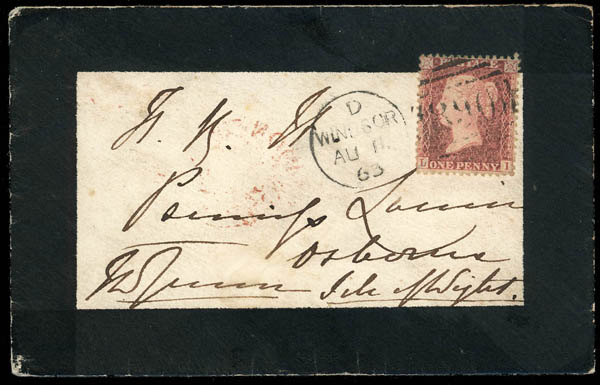 H. R. H
D
WINDSOR
AU 11
63
890
ONE PENNY
Princess Louise
Osborne
The Queen Isle of Wight.